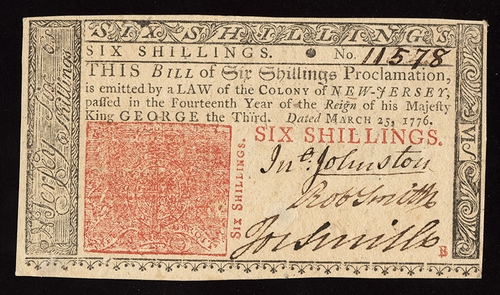 SIX SHILLINGS
SIX SHILLINGS. No. 11578
THIS BILL of Six Shillings Proclamation,
is emitted by a LAW of the COLONY of NEW-JERSEY,
passed in the Fourteenth Year of the Reign of his Majesty
King GEORGE the Third. Dated MARCH 25, 1776.
SIX SHILLINGS.
SIX SHILLINGS.
Jno. Johnston
Rob Smith
Jos Smith
N. Jersey Six
Shillings
VIs